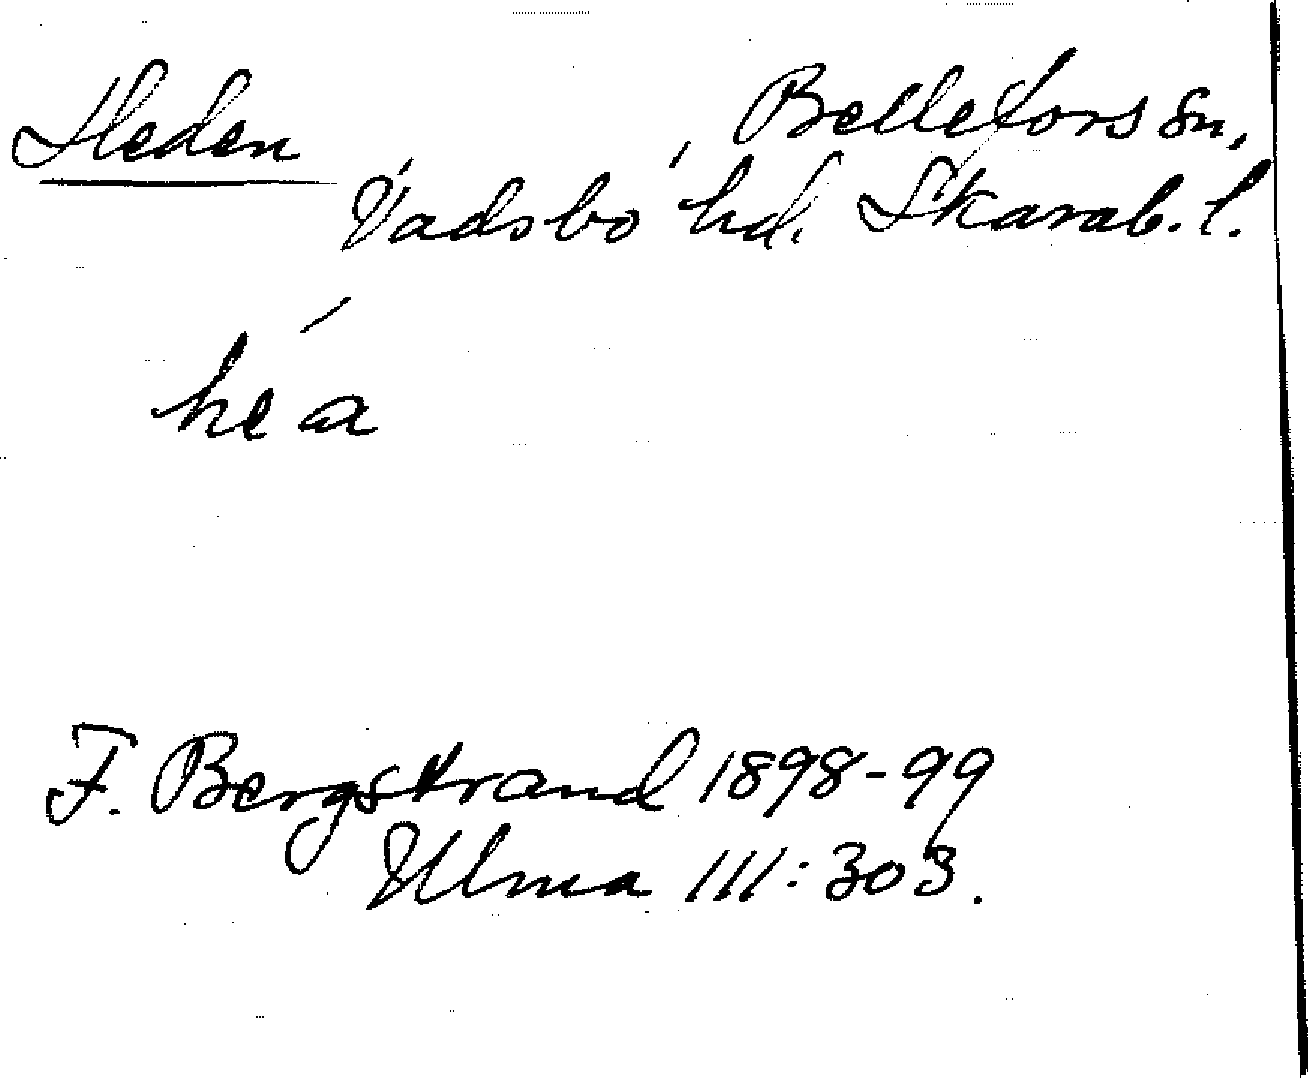 Heden, Bellefors sn,
Vadsbo hd. Skarab. l.
he a
F. Bergstrand 1898-99
Ulma 111:303.